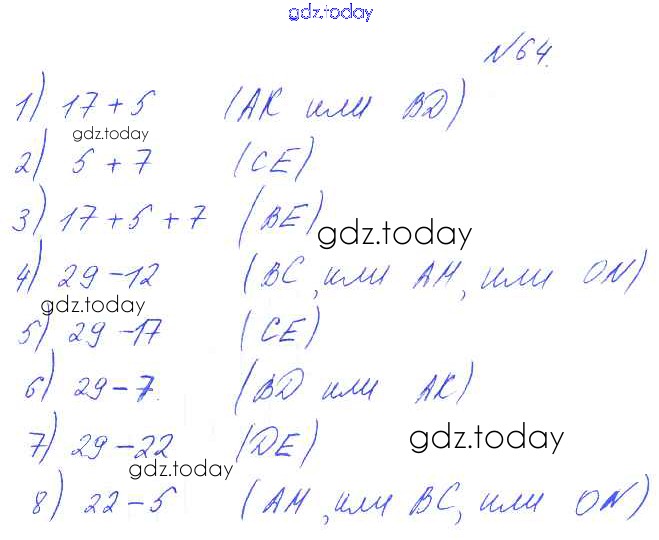 gdz.today
№64.
1) 17+5 (АК или BD)
gdz.today
2) 5+7 (CE)
3) 17+5+7 (BE)
gdz.today
4) 29-12 (BC, или АМ, или ON)
gdz.today
5) 29-17 (CE)
6) 29-7. (BD или АК)
7) 29-22 (DE)
gdz.today
gdz.today
8) 22-5 (АМ, или BC, или ON)